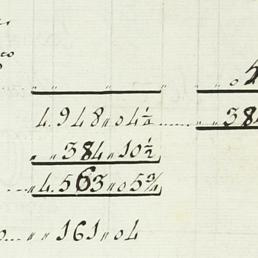 to
4.948 〃 04¼ ...... 〃 〃 38
〃 〃 384 〃 10½
... 4.563 〃 05¾
... 〃 〃 161 〃 04